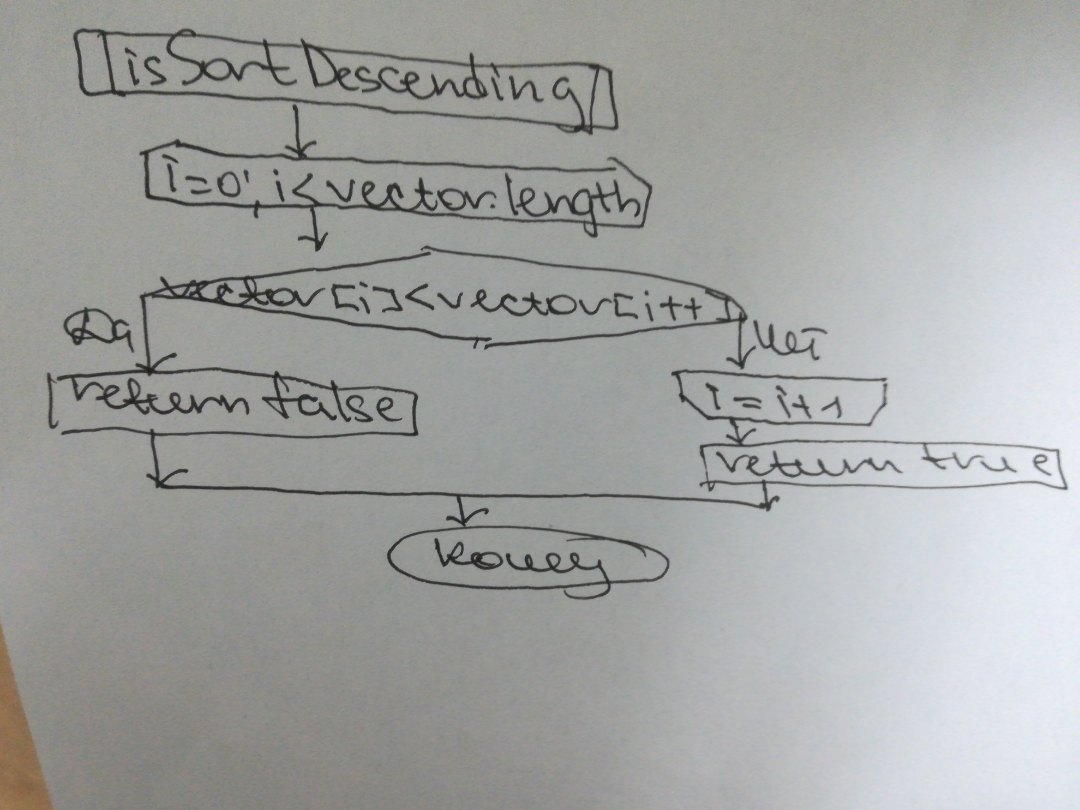 isSortDescending
i=0; i<vector.length
vector[i]<vector[i++]
Да
Нет
return false
i=i+1
return true
конец